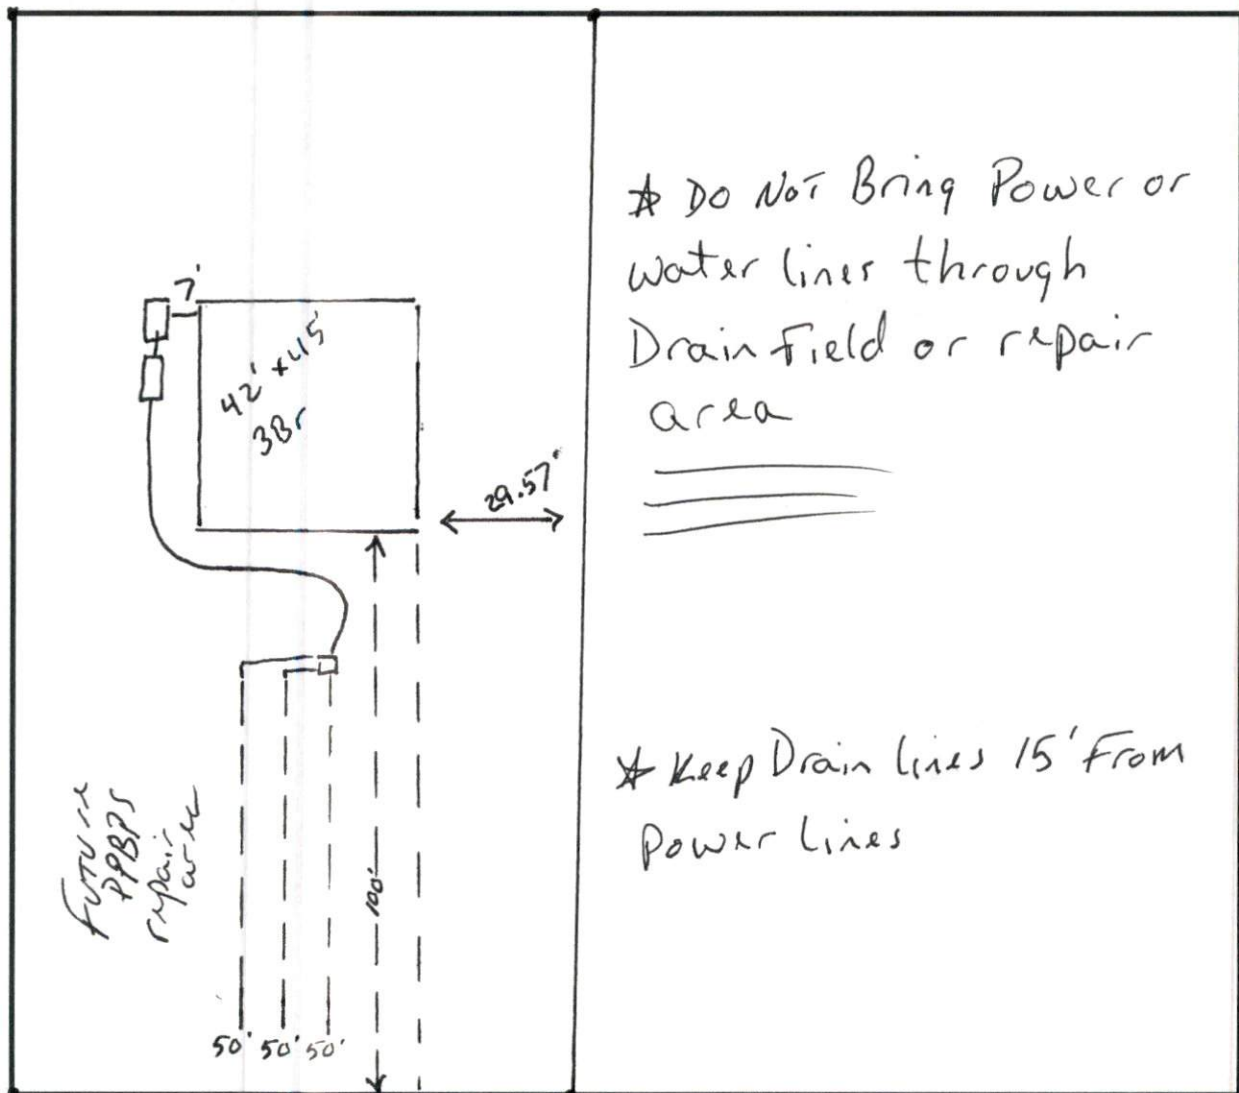 7'
42' x 45'
3Br
29.57'
100'
Future
PPBPS
repair
area
50' 50' 50'
* DO NOT Bring Power or
water lines through
Drain Field or repair
area
* Keep Drain lines 15' From
Power Lines